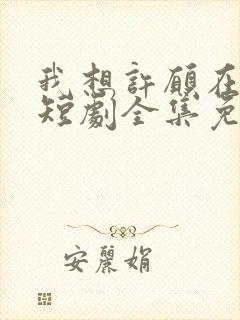 我想許願在
短劇全集免
安麗娟